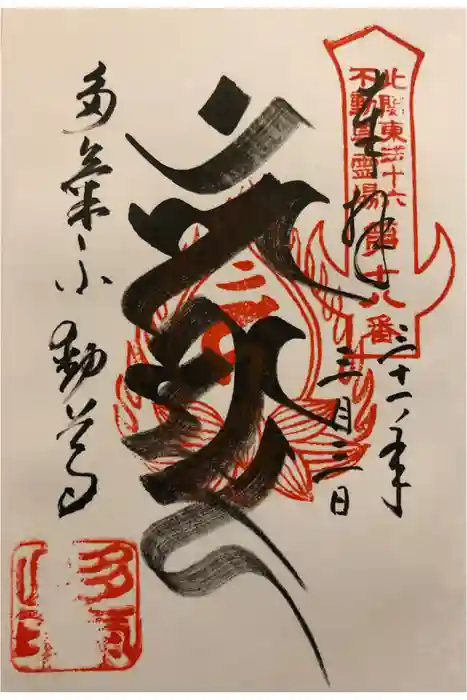 北関東三十六
不動尊霊場第十八番
奉拝
三十一年
三月三日
多氣不動尊